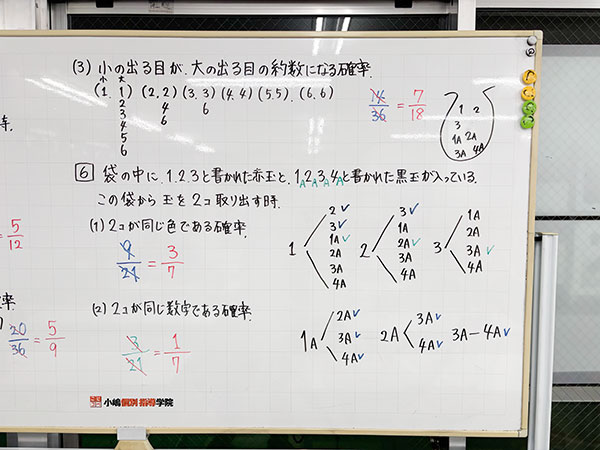 (3) 小の出る目が、大の出る目の約数になる確率.
小 大
(1, 1) (2, 2) (3, 3) (4, 4) (5, 5), (6, 6)
2 4 6
3 6
4
5
6
14/36 = 7/18
1 2
3
1A 2A
3A 4A
等.
6 袋の中に、1,2,3と書かれた赤玉と、1,2,3,4と書かれた黒玉が入っている.
A A A A
この袋から玉を2コ取り出す時.
= 5/12
(1) 2コが同じ色である確率.
9/21 = 3/7
1
2 ✓
3 ✓
1A ✓
2A
3A
4A
2
3 ✓
1A
2A ✓
3A
4A
3
1A
2A
3A ✓
4A
率.
20/36 = 5/9
(2) 2コが同じ数字である確率.
3/21 = 1/7
1A
2A ✓
3A ✓
4A ✓
2A
3A ✓
4A ✓
3A — 4A ✓
小嶋個別指導学院